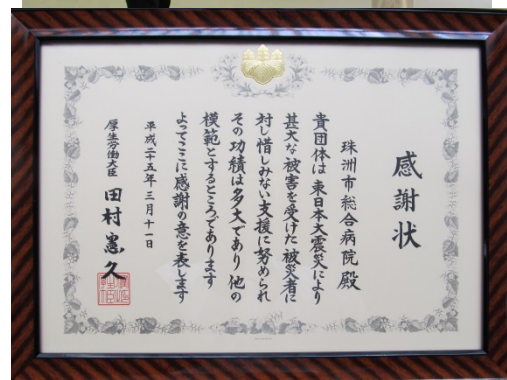 感謝状
珠洲市総合病院殿
貴団体は東日本大震災により
甚大な被害を受けた被災者に
対し惜しみない支援に努められ
その功績は多大であり他の
模範とするところであります
よってここに感謝の意を表します
平成二十五年三月十一日
厚生労働大臣 田村憲久